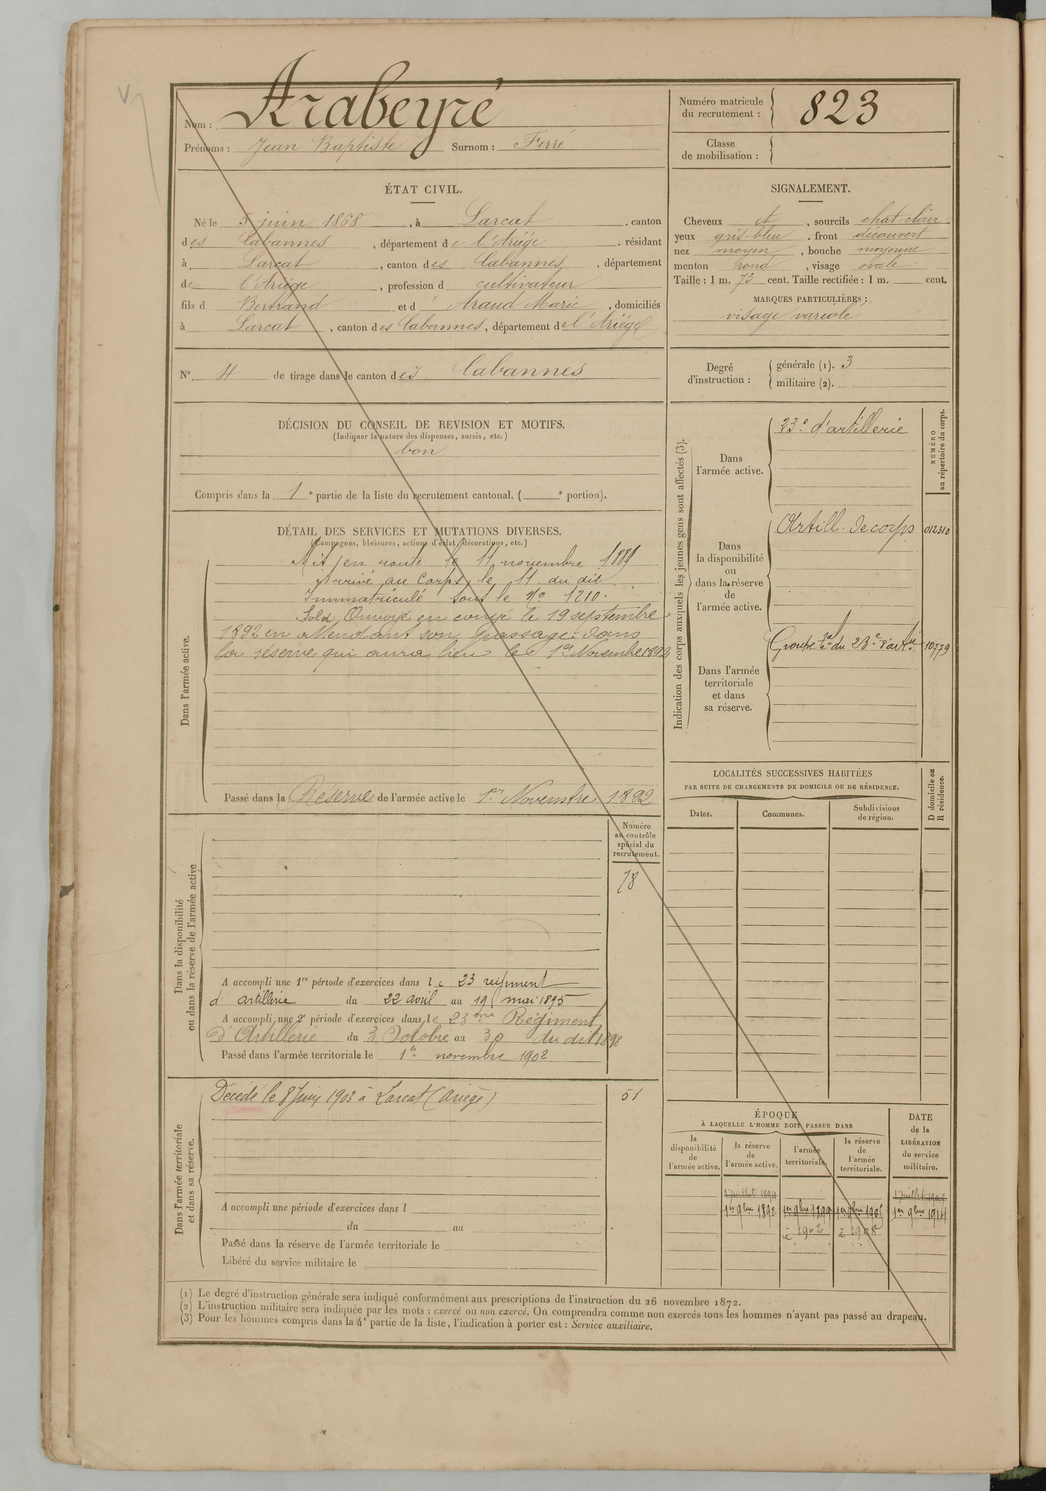 Nom : Arabeyré
Prénoms : Jean Baptiste Surnom : Ferré
Numéro matricule
du recrutement : 823
Classe
de mobilisation :
ÉTAT CIVIL.
Né le 5 juin 1868, à Larcat, canton
des Cabannes, département de l'Ariége, résidant
à Larcat, canton des Cabannes, département
de l'Ariége, profession d cultivateur
fils d Bertrand et d' Araud Marie, domiciliés
à Larcat, canton des Cabannes, département de l'Ariége
SIGNALEMENT.
Cheveux et, sourcils chat-clair
yeux gris-bleu, front découvert
nez moyen, bouche moyenne
menton rond, visage ovale
Taille : 1 m. 73 cent. Taille rectifiée : 1 m. cent.
MARQUES PARTICULIÈRES :
visage variolé
N° 4 de tirage dans le canton des Cabannes
Degré
d'instruction :
générale (1). 3
militaire (2).
DÉCISION DU CONSEIL DE REVISION ET MOTIFS.
(Indiquer la nature des dispenses, sursis, etc.)
bon
Compris dans la 1e partie de la liste du recrutement cantonal. ( e portion).
DÉTAIL DES SERVICES ET MUTATIONS DIVERSES.
(Campagnes, blessures, actions d'éclat, décorations, etc.)
Dans l'armée active.
Mis en route le 11 novembre 1889
Arrivé au corps, le 11 du dit
Immatriculé sous le N° 1210.
Envoyé en congé le 19 septembre
1892 en attendant son passage dans
la réserve qui aura lieu le 1er Novembre 1892
Passé dans la Réserve de l'armée active le 1er Novembre 1892
Indication des corps auxquels les jeunes gens sont affectés (3).
NUMÉRO
au répertoire du corps.
Dans
l'armée active.
23e d'artillerie
Dans
la disponibilité
ou
dans la réserve
de
l'armée active.
Artill. de corps 012310
Dans l'armée
territoriale
et dans
sa réserve.
Groupe tal du 23e d'artie 10779
LOCALITÉS SUCCESSIVES HABITÉES
PAR SUITE DE CHANGEMENTS DE DOMICILE OU DE RÉSIDENCE.
Dates.
Communes.
Subdivisions
de région.
D domicile ou
R résidence.
Dans la disponibilité
ou dans la réserve de l'armée active
Numéro
au contrôle
spécial du
recrutement.
78
A accompli une 1re période d'exercices dans le 23 régiment
d'artillerie du 22 avril au 19 mai 1895
A accompli une 2e période d'exercices dans le 23eme Régiment
d'Artillerie du 3 Octobre au 30 du dit 1898
Passé dans l'armée territoriale le 1er novembre 1902
Dans l'armée territoriale
et dans sa réserve.
Décédé le 8 Juin 1903 à Larcat (Ariège) 51
A accompli une période d'exercices dans l
du au
Passé dans la réserve de l'armée territoriale le
Libéré du service militaire le
ÉPOQUE
À LAQUELLE L'HOMME DOIT PASSER DANS
la
disponibilité
de
l'armée active.
la réserve
de
l'armée active.
l'armée
territoriale.
la réserve
de
l'armée
territoriale.
DATE
de la
LIBÉRATION
du service
militaire.
1er 9bre 1892 1er 9bre 1899 1er 9bre 1914
1902 1908
(1) Le degré d'instruction générale sera indiqué conformément aux prescriptions de l'instruction du 26 novembre 1872.
(2) L'instruction militaire sera indiquée par les mots : exercé ou non exercé. On comprendra comme non exercés tous les hommes n'ayant pas passé au drapeau.
(3) Pour les hommes compris dans la 4e partie de la liste, l'indication à porter est : Service auxiliaire.